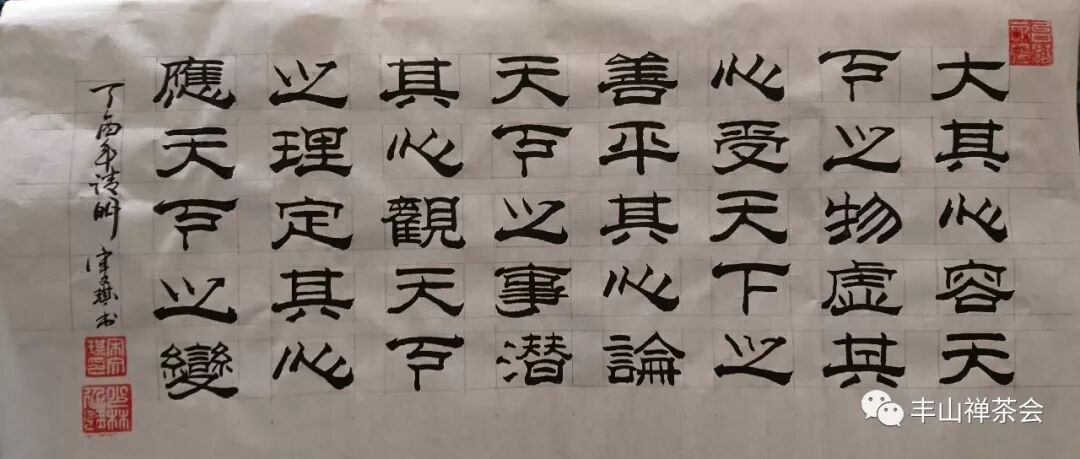 大其心容天
下之物虛其
心受天下之
善平其心論
天下之事潛
其心觀天下
之理定其心
應天下之變
丁酉年清明
书
丰山禅茶会